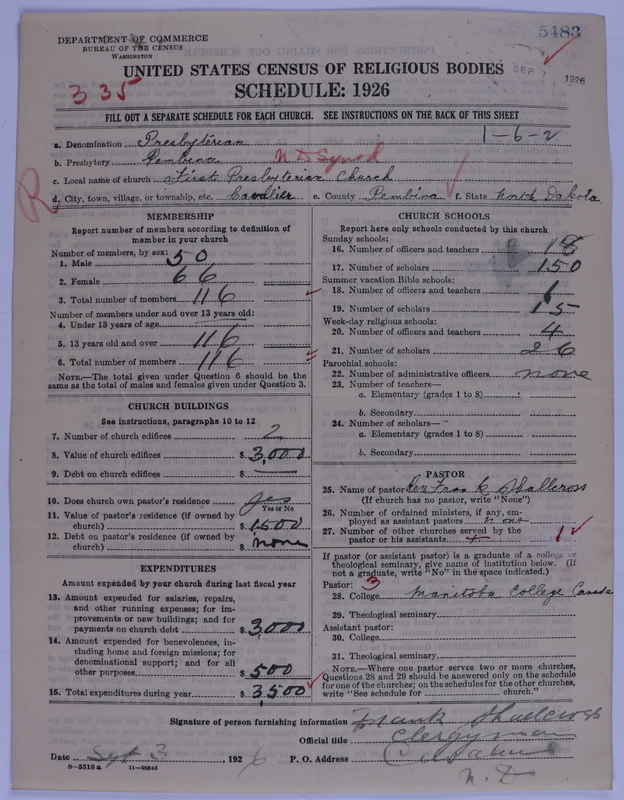 5483
DEPARTMENT OF COMMERCE
BUREAU OF THE CENSUS
WASHINGTON
SEP 7 1926
UNITED STATES CENSUS OF RELIGIOUS BODIES
335
SCHEDULE: 1926
FILL OUT A SEPARATE SCHEDULE FOR EACH CHURCH. SEE INSTRUCTIONS ON THE BACK OF THIS SHEET
1-6-2
a. Denomination Presbyterian
b. Presbytery Pembina N D Synod
c. Local name of church First Presbyterian Church
R
d. City, town, village, or township, etc. Cavalier e. County Pembina f. State North Dakota
MEMBERSHIP
Report number of members according to definition of
member in your church
Number of members, by sex:
1. Male 50
2. Female 66
3. Total number of members 116
Number of members under and over 13 years old:
4. Under 13 years of age
5. 13 years old and over 116
6. Total number of members 116
NOTE.—The total given under Question 6 should be
same as the total of males and females given under Question 3.
CHURCH BUILDINGS
See instructions, paragraphs 10 to 12
7. Number of church edifices 2
8. Value of church edifices $ 3,000
9. Debt on church edifices $
10. Does church own pastor's residence yes
Yes or No
11. Value of pastor's residence (if owned by
church) $ 1500
12. Debt on pastor's residence (if owned by
church) $ none
EXPENDITURES
Amount expended by your church during last fiscal year
13. Amount expended for salaries, repairs,
and other running expenses; for im-
provements or new buildings; and for
payments on church debt $ 3,000
14. Amount expended for benevolences, in-
cluding home and foreign missions; for
denominational support; and for all
other purposes $ 500
15. Total expenditures during year $ 3,500
CHURCH SCHOOLS
Report here only schools conducted by this church
Sunday schools:
16. Number of officers and teachers 18
17. Number of scholars 150
Summer vacation Bible schools:
18. Number of officers and teachers 1
19. Number of scholars 15
Week-day religious schools:
20. Number of officers and teachers 4
21. Number of scholars 26
Parochial schools:
22. Number of administrative officers none
23. Number of teachers—
a. Elementary (grades 1 to 8)
b. Secondary
24. Number of scholars—
a. Elementary (grades 1 to 8)
b. Secondary
PASTOR
25. Name of pastor Rev Frank Shallcross
(If church has no pastor, write "None")
26. Number of ordained ministers, if any, em-
ployed as assistant pastors none
27. Number of other churches served by the
pastor or his assistants 1
If pastor (or assistant pastor) is a graduate of a college or
theological seminary, give name of institution below. (If
not a graduate, write "No" in the space indicated.)
Pastor: 3
28. College Manitoba College Canada
29. Theological seminary
Assistant pastor:
30. College
31. Theological seminary
NOTE.—Where one pastor serves two or more churches,
Questions 28 and 29 should be answered only on the schedule
for one of the churches; on the schedules for the other churches,
write "See schedule for church."
Signature of person furnishing information Frank Shallcross
Official title Clergyman
Date Sept 3 1926 P. O. Address Cavalier
N. D
8—5518 a 11—9564d